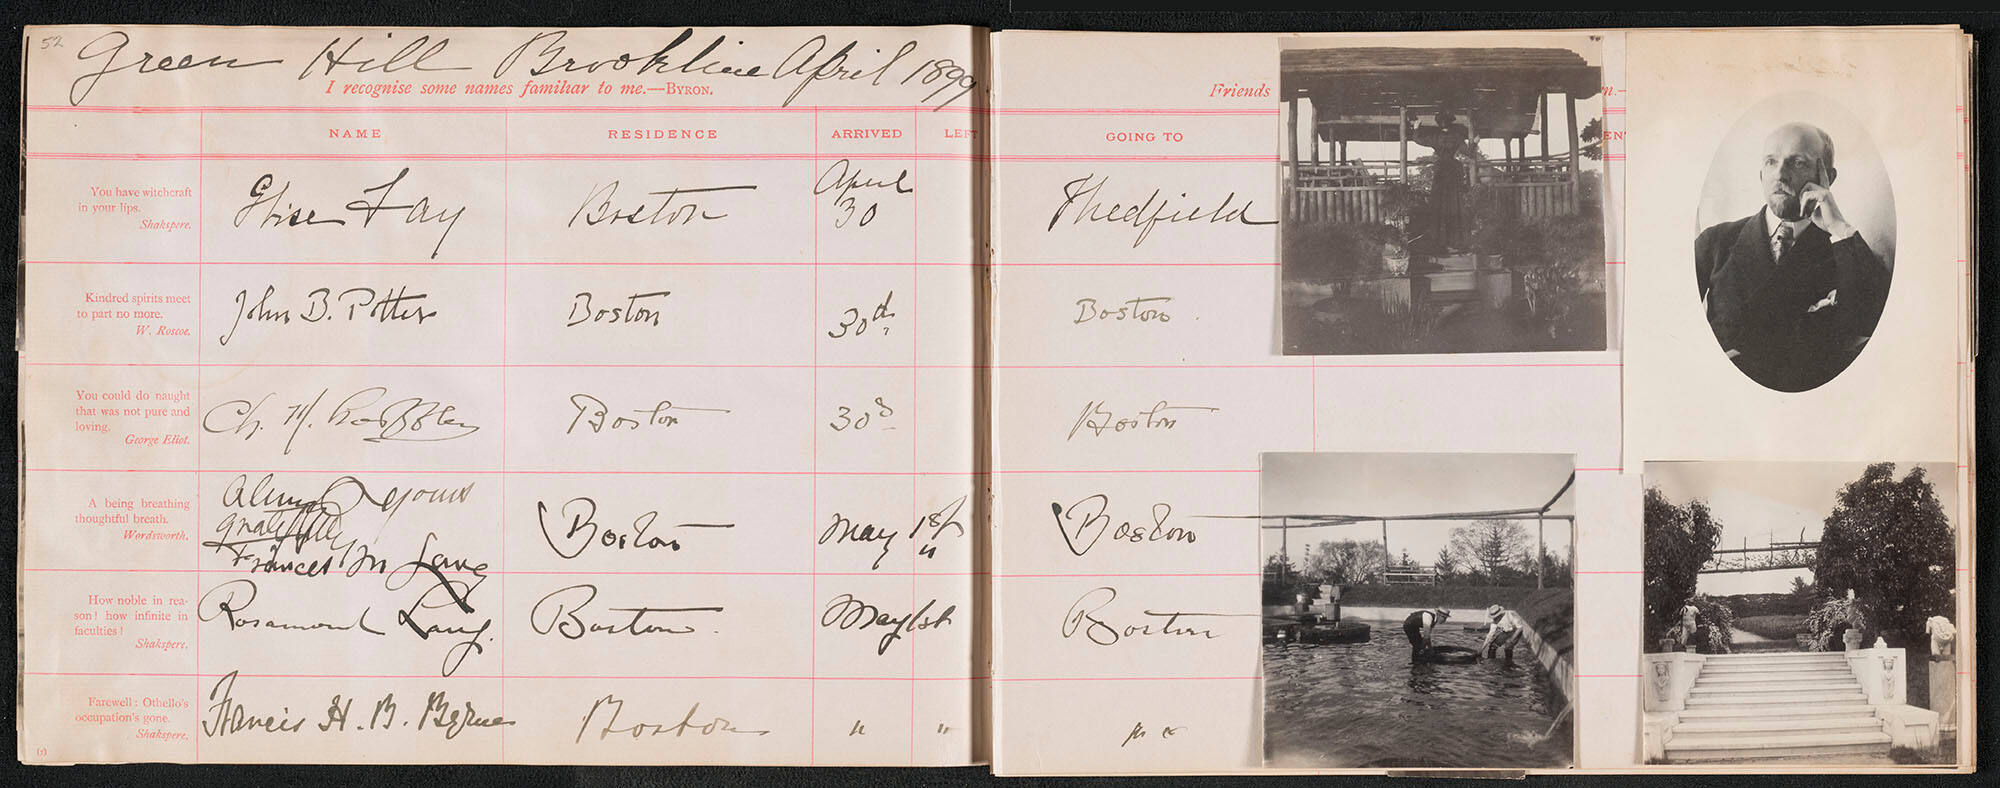 52
Green Hill Brookline April 1899
I recognise some names familiar to me.—BYRON.
NAME RESIDENCE ARRIVED LEFT
You have witchcraft
in your lips.
Shakspere.
Elise Fay Boston April
30
Kindred spirits meet
to part no more.
W. Roscoe.
John B. Potter Boston 30th
You could do naught
that was not pure and
loving.
George Eliot.
Ch. M. Loeffler Boston 30
A being breathing
thoughtful breath.
Wordsworth.
Always yours
gratefully
Frances M Lang Boston May 1st "
How noble in rea-
son! how infinite in
faculties!
Shakspere.
Rosamond Lang. Boston. May 1st
Farewell: Othello's
occupation's gone.
Shakspere.
Francis H. B. Byrne Boston " "
(1)
Friends
GOING TO
Medfield
Boston.
Boston
Boston
Boston
" "